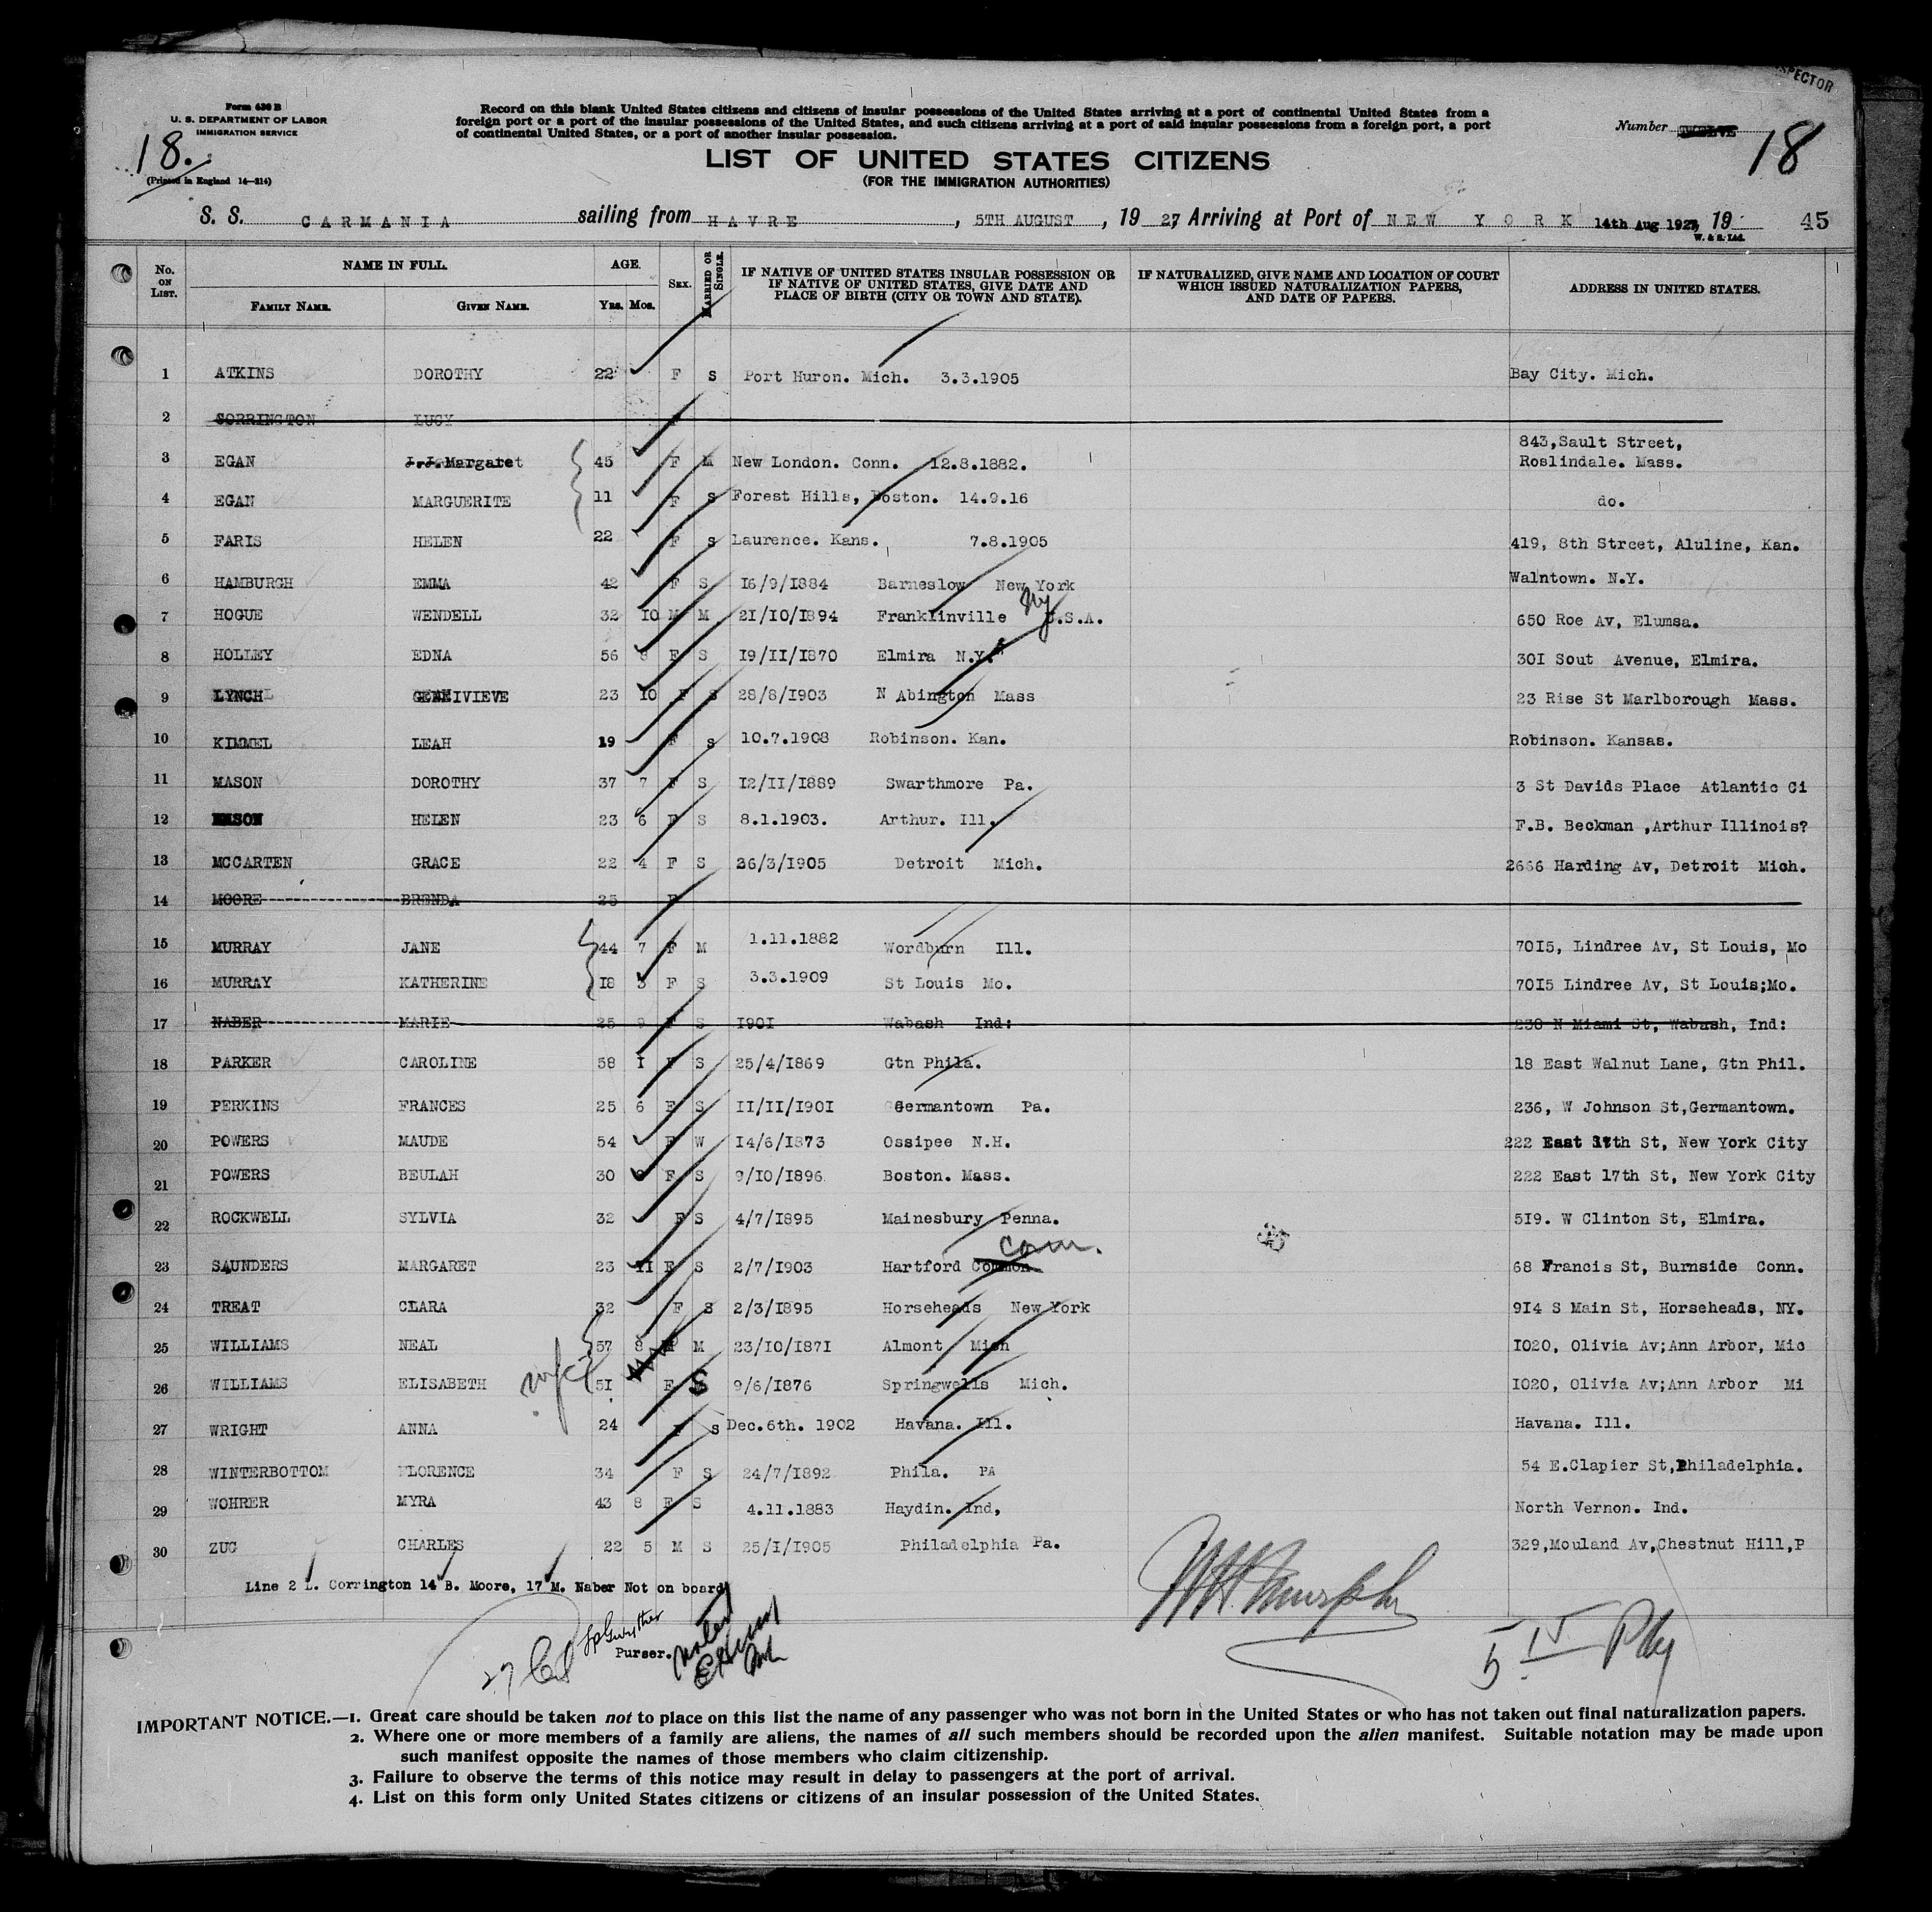 INSPECTOR
Form 630 B
U. S. DEPARTMENT OF LABOR
IMMIGRATION SERVICE
18.
(Printed in England 14—214)
Record on this blank United States citizens and citizens of insular possessions of the United States arriving at a port of continental United States from a
foreign port or a port of the insular possessions of the United States, and such citizens arriving at a port of said insular possessions from a foreign port, a port
of continental United States, or a port of another insular possession.
Number TWELVE 18
LIST OF UNITED STATES CITIZENS
(FOR THE IMMIGRATION AUTHORITIES)
S. S. CARMANIA sailing from HAVRE, 5TH AUGUST, 19 27, Arriving at Port of NEW YORK 14th Aug 1927, 19 45
W. & S. Ltd.
No. ON LIST. NAME IN FULL. AGE. SEX. MARRIED OR SINGLE. IF NATIVE OF UNITED STATES INSULAR POSSESSION OR IF NATIVE OF UNITED STATES, GIVE DATE AND PLACE OF BIRTH (CITY OR TOWN AND STATE). IF NATURALIZED, GIVE NAME AND LOCATION OF COURT WHICH ISSUED NATURALIZATION PAPERS, AND DATE OF PAPERS. ADDRESS IN UNITED STATES.
FAMILY NAME. GIVEN NAME. YRS. MOS.
1 ATKINS DOROTHY 22 F S Port Huron. Mich. 3.3.1905 Bay City. Mich.
2 CORRINGTON LUCY
3 EGAN J.J. Margaret 45 F M New London. Conn. 12.8.1882. 843,Sault Street, Roslindale. Mass.
4 EGAN MARGUERITE 11 F S Forest Hills, Boston. 14.9.16 do.
5 FARIS HELEN 22 F S Laurence. Kans. 7.8.1905 419, 8th Street, Aluline, Kan.
6 HAMBURGH EMMA 42 F S 16/9/1884 Barneslow New York Walntown. N.Y.
7 HOGUE WENDELL 32 10 M M 21/10/1894 Franklinville NY U.S.A. 650 Roe Av, Elumsa.
8 HOLLEY EDNA 56 8 F S 19/11/1870 Elmira N.Y. 301 Sout Avenue, Elmira.
9 LYNCH GENIVIEVE 23 10 F S 28/8/1903 N Abington Mass 23 Rise St Marlborough Mass.
10 KIMMEL LEAH 19 F S 10.7.1908 Robinson. Kan. Robinson. Kansas.
11 MASON DOROTHY 37 7 F S 12/11/1889 Swarthmore Pa. 3 St Davids Place Atlantic Ci
12 MASON HELEN 23 6 F S 8.1.1903. Arthur. Ill. F.B. Beckman ,Arthur Illinois?
13 MCCARTEN GRACE 22 4 F S 26/3/1905 Detroit Mich. 2666 Harding Av, Detroit Mich.
14 MOORE BRENDA 25 F
15 MURRAY JANE 44 7 F M 1.11.1882 Wordburn Ill. 7015, Lindree Av, St Louis, Mo
16 MURRAY KATHERINE 18 5 F S 3.3.1909 St Louis Mo. 7015 Lindree Av, St Louis;Mo.
17 NABER MARIE 25 9 F S 1901 Wabash Ind: 230 N Miami St, Wabash, Ind:
18 PARKER CAROLINE 58 1 F S 25/4/1869 Gtn Phila. 18 East Walnut Lane, Gtn Phil.
19 PERKINS FRANCES 25 6 F S 11/11/1901 Germantown Pa. 236, W Johnson St,Germantown.
20 POWERS MAUDE 54 F W 14/6/1873 Ossipee N.H. 222 East 17th St, New York City
21 POWERS BEULAH 30 F S 9/10/1896 Boston. Mass. 222 East 17th St, New York City
22 ROCKWELL SYLVIA 32 F S 4/7/1895 Mainesbury Penna. 519. W Clinton St, Elmira.
23 SAUNDERS MARGARET 23 11 F S 2/7/1903 Hartford Common Conn. 68 Francis St, Burnside Conn.
24 TREAT CLARA 32 F S 2/3/1895 Horseheads New York 914 S Main St, Horseheads, NY.
25 WILLIAMS NEAL 57 8 M M 23/10/1871 Almont Mich 1020, Olivia Av;Ann Arbor, Mic
26 WILLIAMS ELISABETH wife 51 F S 9/6/1876 Springwells Mich. 1020, Olivia Av;Ann Arbor Mi
27 WRIGHT ANNA 24 F S Dec.6th. 1902 Havana. Ill. Havana. Ill.
28 WINTERBOTTOM FLORENCE 34 F S 24/7/1892 Phila. PA 54 E.Clapier St,Philadelphia.
29 WOHRER MYRA 43 8 F S 4.11.1883 Haydin. Ind, North Vernon. Ind.
30 ZUG CHARLES 22 5 M S 25/1/1905 Philadelphia Pa. 329,Mouland Av,Chestnut Hill,P
Line 2 L. Corrington 14 B. Moore, 17 M. Naber Not on board
Purser.
Noted
27
IMPORTANT NOTICE.—1. Great care should be taken not to place on this list the name of any passenger who was not born in the United States or who has not taken out final naturalization papers.
2. Where one or more members of a family are aliens, the names of all such members should be recorded upon the alien manifest. Suitable notation may be made upon
such manifest opposite the names of those members who claim citizenship.
3. Failure to observe the terms of this notice may result in delay to passengers at the port of arrival.
4. List on this form only United States citizens or citizens of an insular possession of the United States.